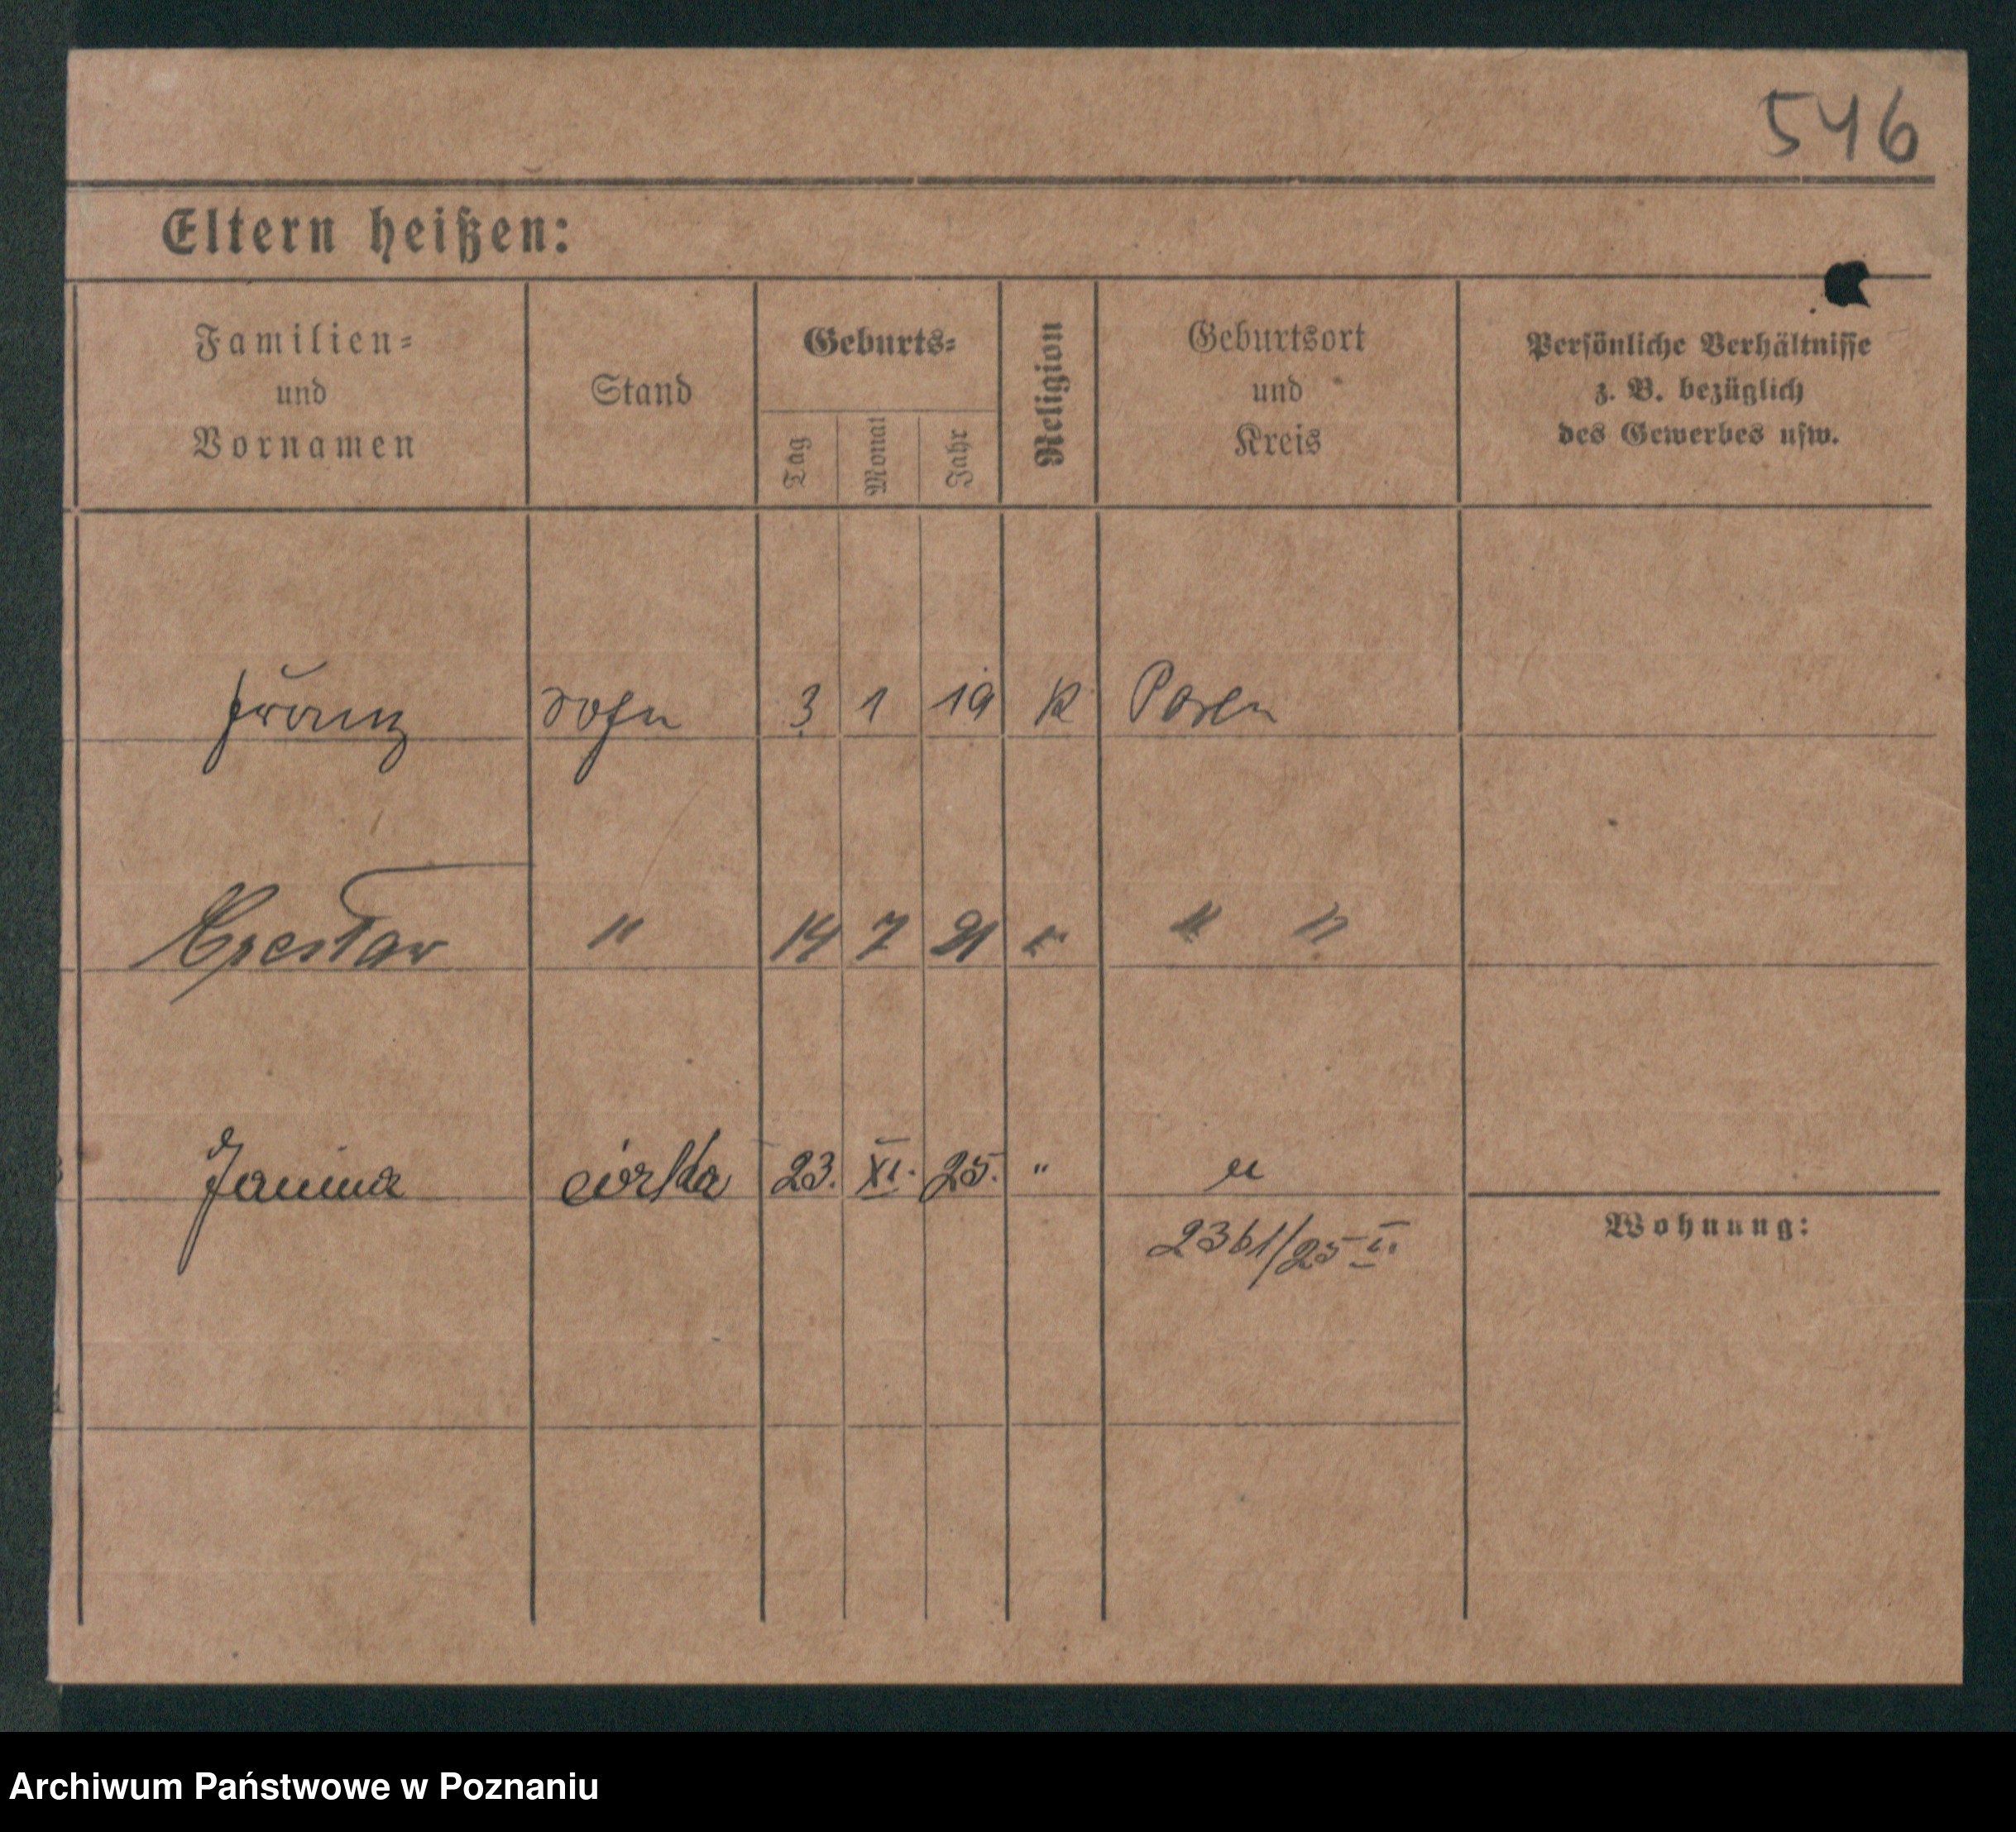 546
Eltern heißen:
Familien=
und
Vornamen
Stand
Geburts=
Tag
Monat
Jahr
Religion
Geburtsort
und
Kreis
Persönliche Verhältnisse
z. B. bezüglich
des Gewerbes usw.
Franz Sohn 3 1 19 K Posen
Czesław " 14 7 21 " " "
Janina córka 23. XI. 25. " "
2361/25 II.
Wohnung:
Archiwum Państwowe w Poznaniu